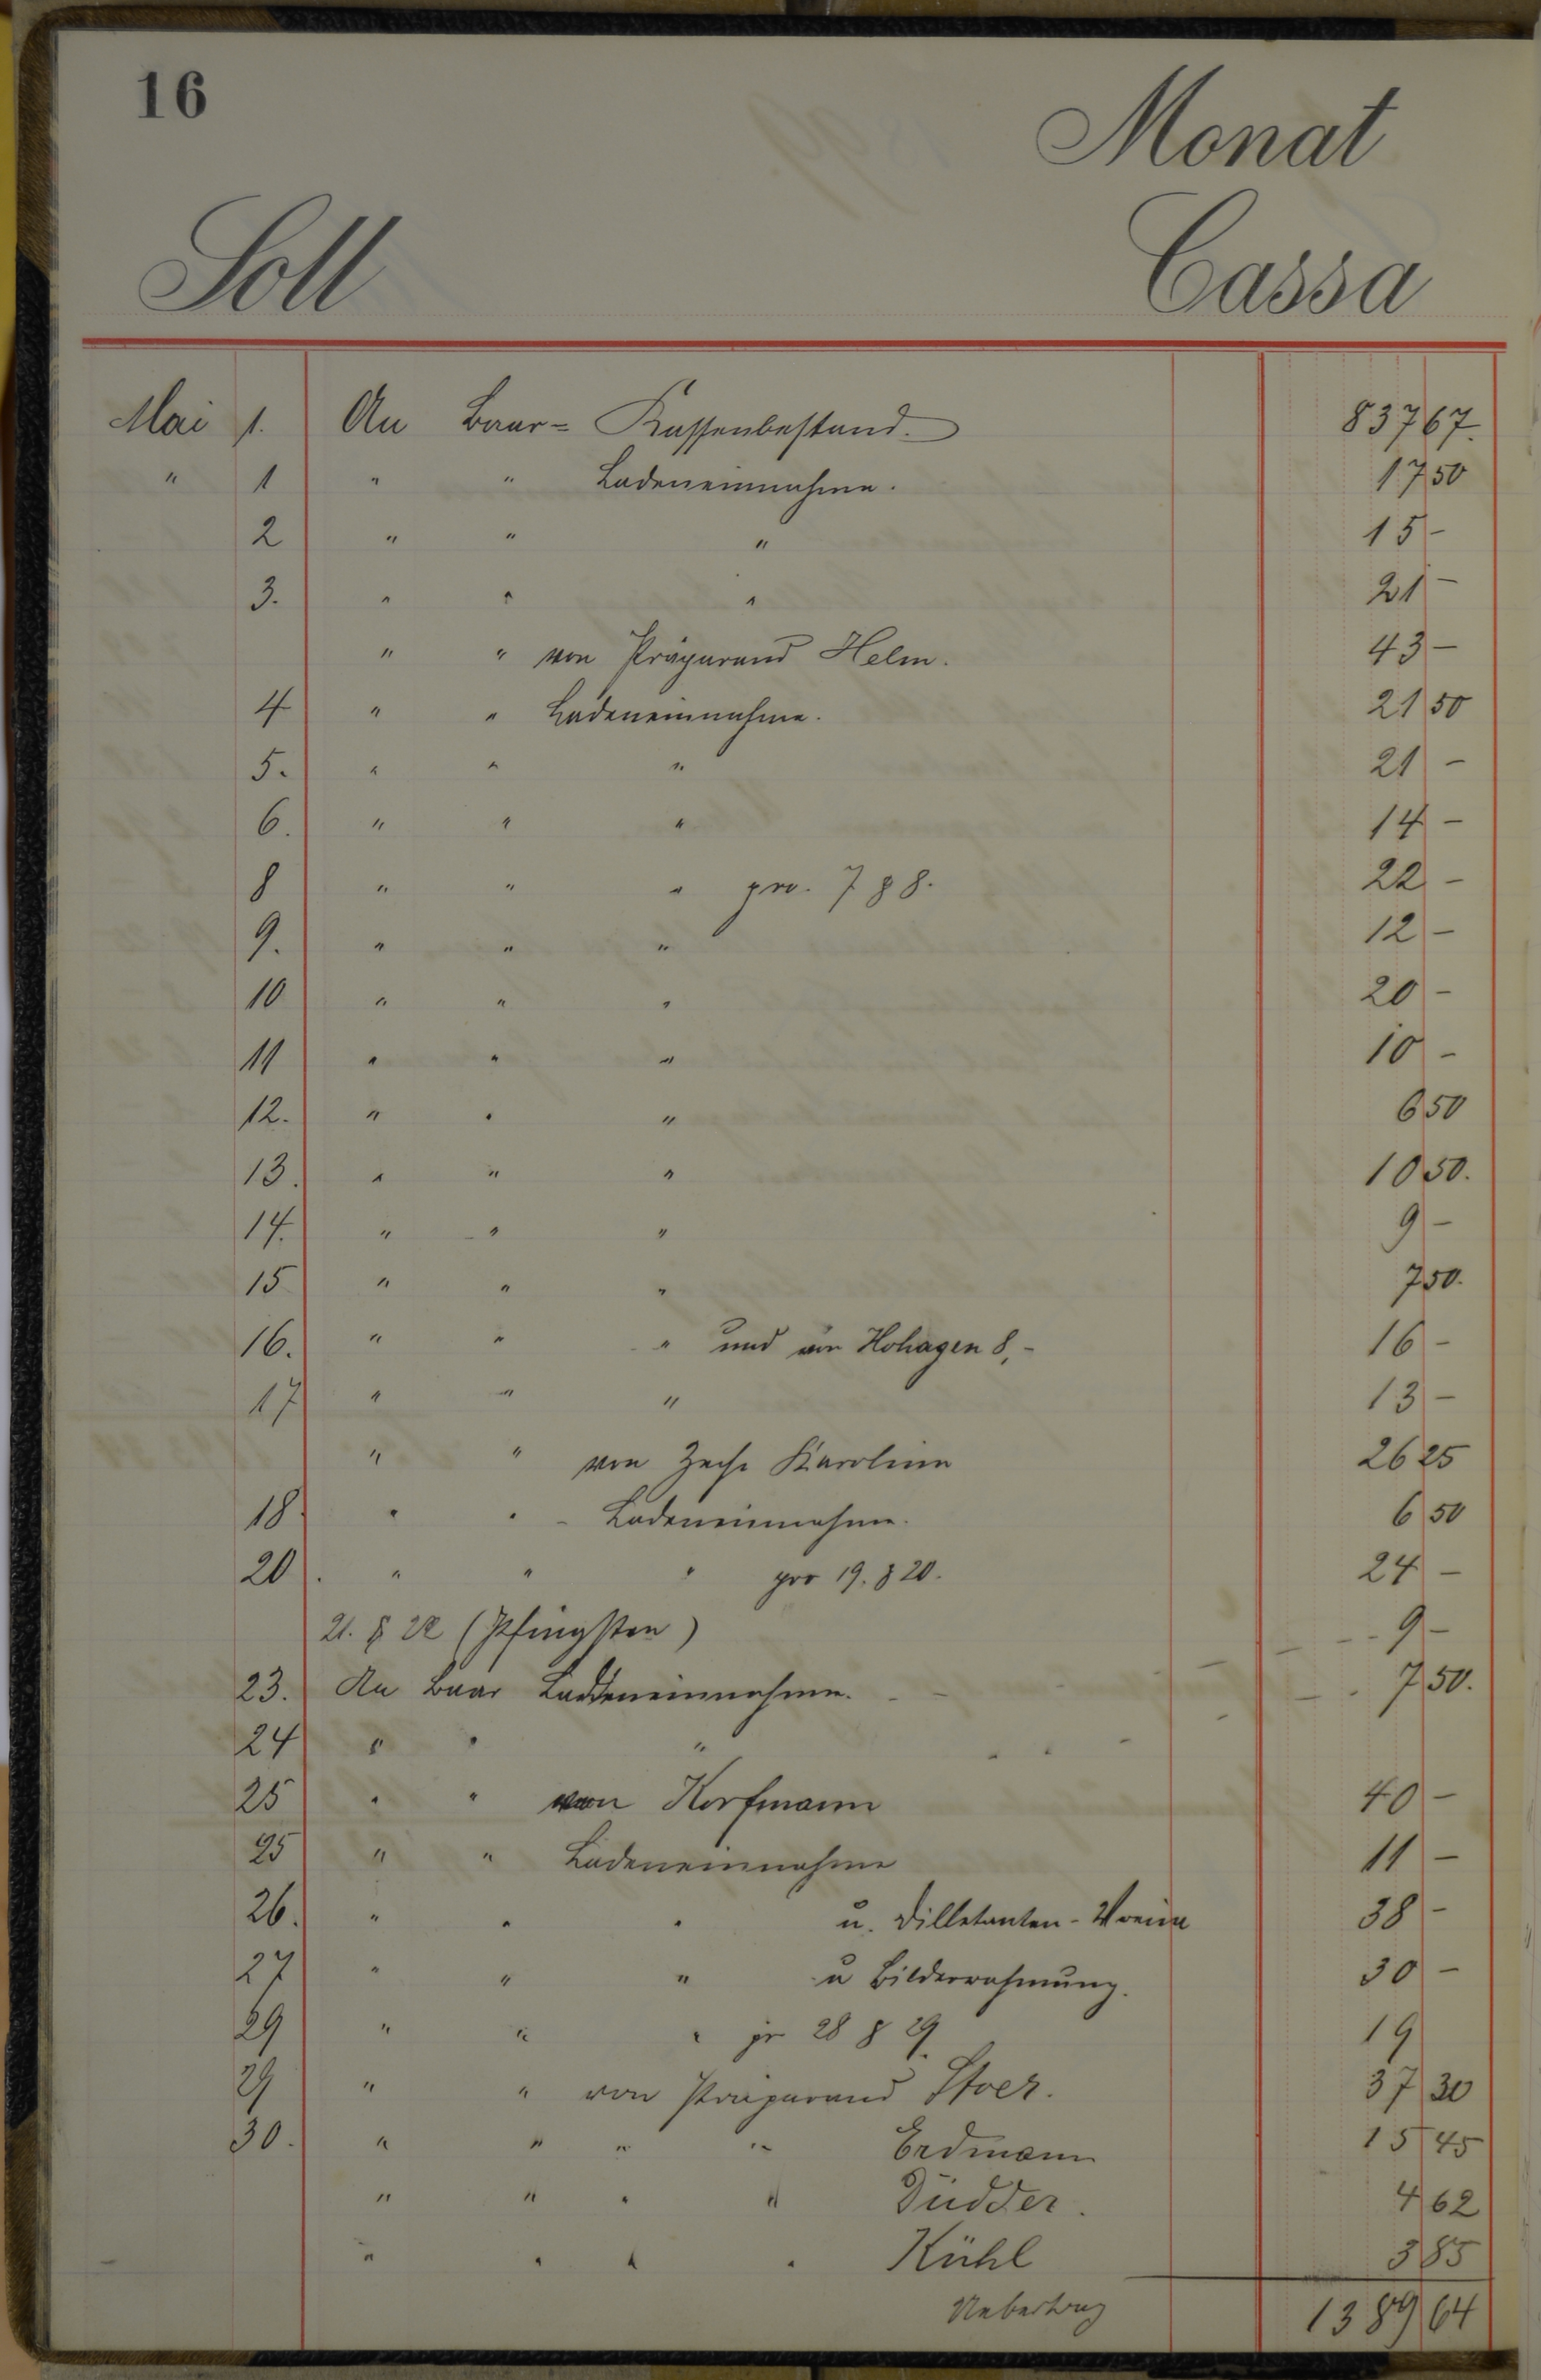 16
Monat
Soll Cassa
Mai 1. An Baar= Kassenbestand. 837 67.
" 1 " " Ladeneinnahme. 17 50
2 " " " 15 -
3. " " " 21 -
" " von Präparand Helm. 43 -
4 " " Ladeneinnahme. 21 50
5. " " " 21 -
6. " " " 14 -
8 " " " pro. 7 & 8. 22 -
9. " " " 12 -
10 " " " 20 -
11 " " " 10 -
12. " " " 6 50
13. " " " 10 50.
14. " " " 9 -
15 " " " 7 50.
16. " " " und von Hohagen 8,- 16 -
17 " " " 13 -
" " von Zeche Karoline 26 25
18. " " - Ladeneinnahme. 6 50
20. " " " pro 19. & 20. 24 -
21. & 22 (Pfingsten) 9 -
23. An Baar Ladeneinnahme. 7 50.
24 " " "
25 " " von Korfmann 40 -
25 " " Ladeneinnahme 11 -
26. " " " u. Dilletanten-Verein 38 -
27 " " " u Bilderrahmung. 30 -
29 " " " pr 28 & 29. 19
29 " " von Präparand Stoer. 37 30
30. " " " " Erdmann 15 45
" " " " Düdder. 4 62
" " " " Kühl 3 85
Uebertrag 1389 64